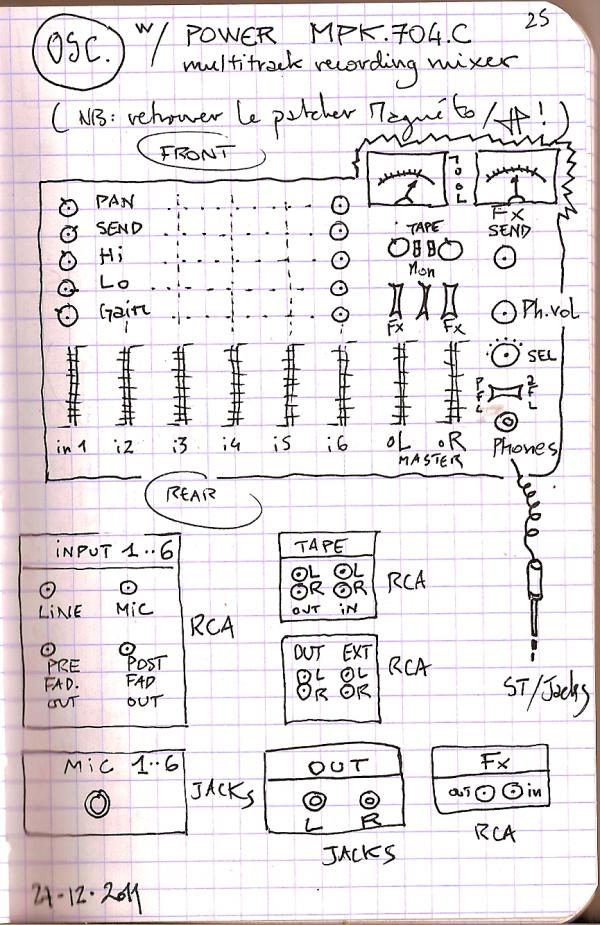 25
OSC. w/ POWER MPK.704.C
multitrack recording mixer
(NB: retrouver le patcher Magnéto / !)
FRONT
TOOL
PAN
SEND
Hi
Lo
Gain
TAPE
Mon
Fx
SEND
Fx Fx
Ph.vol
SEL
PFL
in 1 i2 i3 i4 i5 i6 oL oR
MASTER
Phones
REAR
INPUT 1..6
LiNE MiC
PRE POST
FAD. FAD
OUT OUT
RCA
TAPE
L L
R R
OUT iN
RCA
OUT EXT
L L
R R
RCA
ST/Jacks
MiC 1..6
JACKS
OUT
L R
JACKS
Fx
out in
RCA
21-12-2011